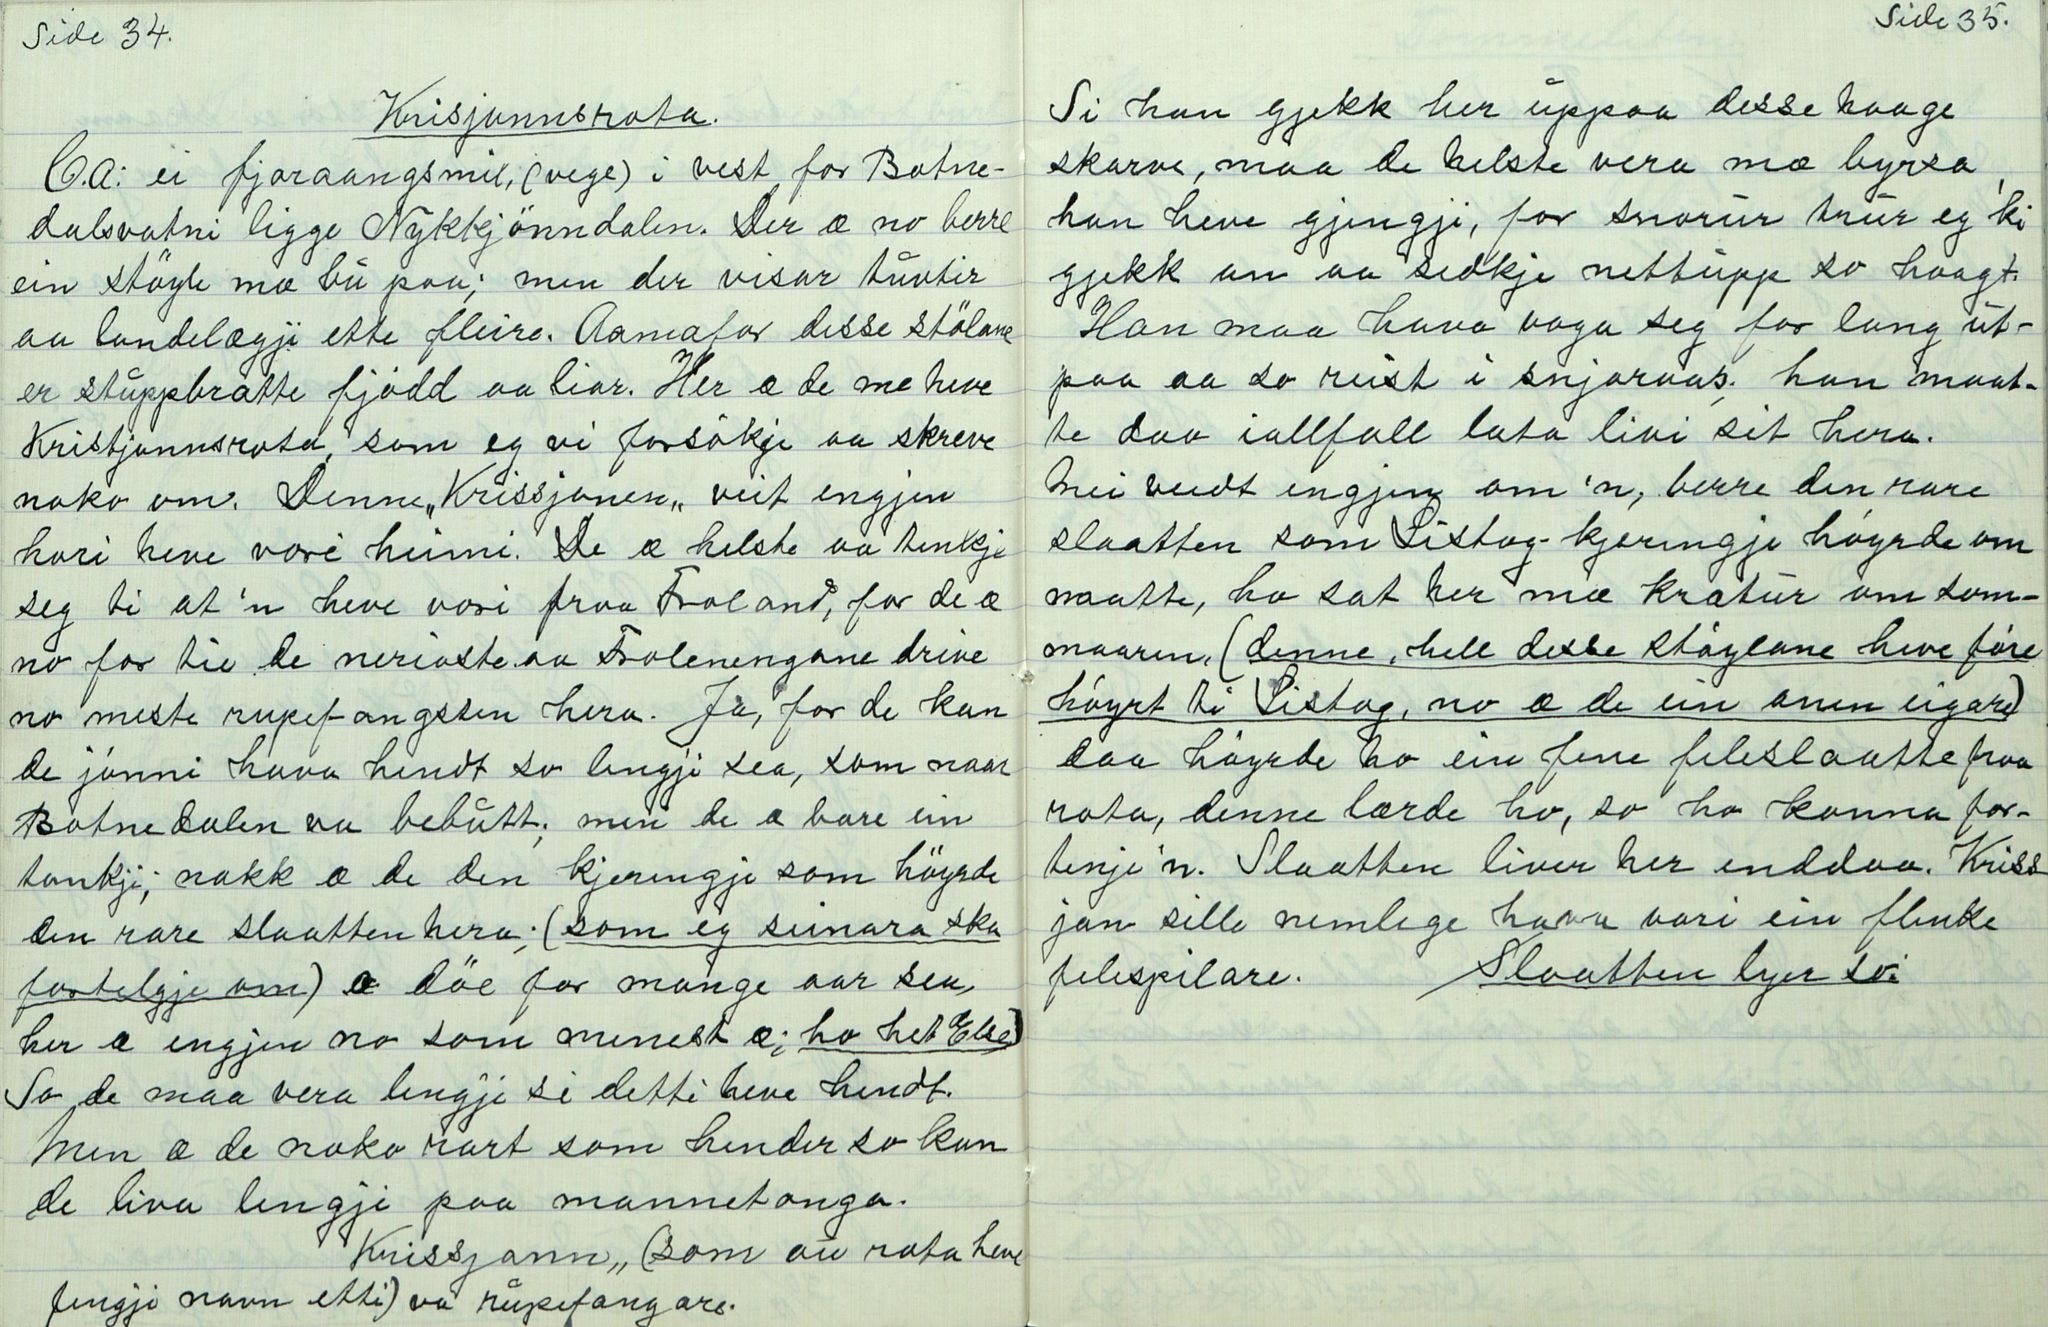 Side 34.
Krisjannsrota.
Ca: ei fjoraangsmil, (vege) i vest for Botne-
dalsvatni ligge Nykkjönndalen. Der æ no berre
ein stöyle mæ bu paa; men der visar tuvtir
aa landelægji ette fleire. Aamafor desse stölane
er stuppbratte fjødd aa liar. Her æ de me heve
Kristjannsrota, som eg vi forsökje aa skreve
noko om. Denne „Krissjanen„ veit engjen
hori heve vori heimi. De æ helste aa tenkje
seg ti at 'n heve vori fraa Froland, for de æ
no for tie de neriaste aa Frolenengane drive
no meste rupefangsten hera. Ja, for de kan
de jónni hava hendt so lengji sea, som naar
Botnedalen va bebutt; men de æ bare ein
tankji; nokk æ de den kjeringje som höyrde
den rare slaatten hera; (som eg seinara ska
fortelgje om) æ döe for mange aar sea,
her æ engjen no som menest æ; ho het Else)
So de maa vera lengji si detti heve hendt.
Men æ de noko rart som hender so kan
de liva lengji paa mannetonga.
Krissjann„ (som au rota heve
fengji navn etti) va rupefangare.
Side 35.
Si han gjekk her uppaa desse haage
skarve, maa de helste vera mæ byrsa,
han heve gjengji, for snorur trur eg 'ki
gjekk an aa sedkje nettupp so haagt.
Han maa hava vaga seg for lang ut-
paa aa so reist i snjoraas; han maat-
te daa iallfall lata livi sit hera.
Mei veidt engjen om 'n, berre den rare
slaatten som Listog-kjeringje höyrde om
naatte, ho sat her mæ kratur om som-
maaren, (denne, hell desse stöylane heve före
höyrt ti Listog, no æ de ein anen eigare)
daa höyrde ho ein fene feleslaatte fraa
rota, denne lærde ho, so ho konna for-
tenje 'n. Slaatten liver her enddaa. Kriss-
jan sille nemlege hava vori ein flinke
felespilare. Slaatten lyer so: